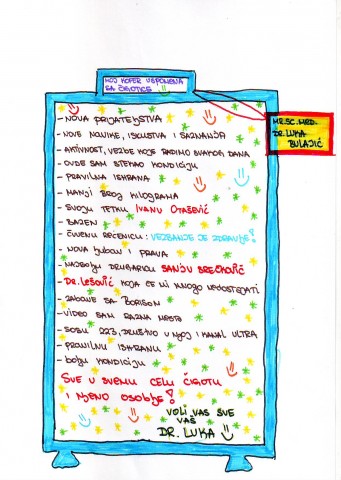 MOJ KOFER USPOMENA
SA ČIGOTICE
MR.SC.MED.
DR. LUKA
BULAJIĆ
- NOVA PRIJATEljSTVA
- NOVE NAVIKE, ISKUSTVA I SAZNANJA
- AKTIVNOST, VEŽBE KOJE RADIMO SVAKOG DANA
- OVDE SAM STEKAO KONDICIJU
- PRAVILNA ISHRANA
- MANJI BROJ KILOGRAMA
- SVOJU TETKU IVANU OTAŠEVIĆ
- BAZEN
- ČUVENU REČENICU: VEŽBANJE JE ZDRAVljE!
- NOVA ljubav I PRAVA
- NAJBOlju DRUGARICU SANJU BREČKOVIĆ
- DR. LEŠOVIĆ KOJA ĆE MI MNOGO NEDOSTAJATI
- ZABAVE SA BORISOM
- VIDEO SAM RAZNA MESTA
- SOBU 223, DRUŠTVO U NJOJ I KANAL ULTRA
- PRAVILNU ISHRANU
- bolju KONDICIJU
SVE U SVEMU CELU ČIGOTU
I NJENO OSOBljE!
VOLI VAS SVE
VAŠ
DR. LUKA